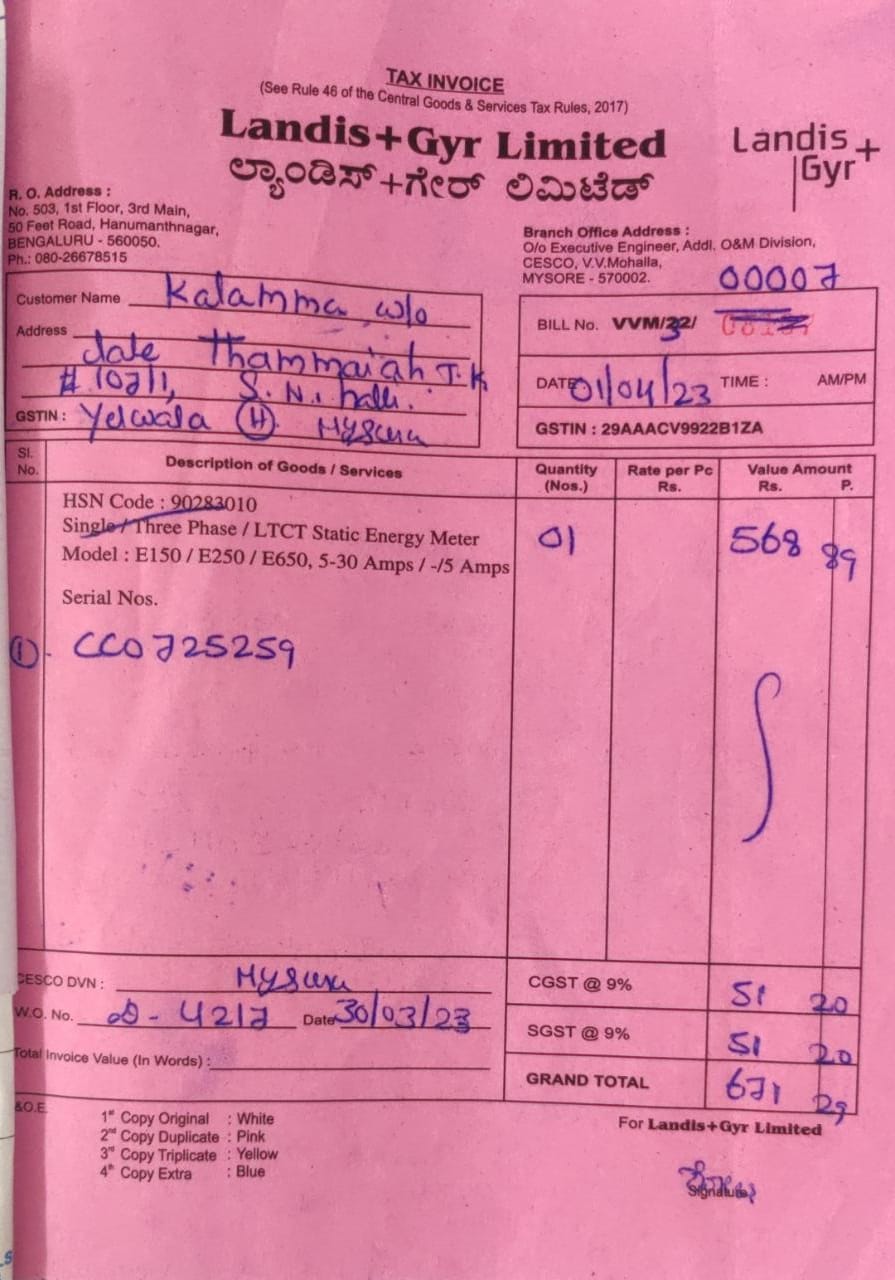 TAX INVOICE
(See Rule 46 of the Central Goods & Services Tax Rules, 2017)
Landis+Gyr Limited
ಲ್ಯಾಂಡಿಸ್+ಗೇರ್ ಲಿಮಿಟೆಡ್
Landis+
Gyr
R. O. Address :
No. 503, 1st Floor, 3rd Main,
50 Feet Road, Hanumanthnagar,
BENGALURU - 560050.
Ph.: 080-26678515
Branch Office Address :
O/o Executive Engineer, Addl. O&M Division,
CESCO, V.V.Mohalla,
MYSORE - 570002.
00007
Customer Name Kalamma w/o
Address
late Thammaiah J.K
# 107/1, S.N. halli.
GSTIN : Yelwala (H). Mysuru
BILL No. VVM/32/
DATE 01/04/23 TIME : AM/PM
GSTIN : 29AAACV9922B1ZA
Sl. No. Description of Goods / Services Quantity (Nos.) Rate per Pc Rs. Value Amount Rs. P.
HSN Code : 90283010
Single / Three Phase / LTCT Static Energy Meter 01 568 89
Model : E150 / E250 / E650, 5-30 Amps / -/5 Amps
Serial Nos.
① CC0725259
CESCO DVN : Mysuru
CGST @ 9% 51 20
W.O. No. D-4217 Date 30/03/23
SGST @ 9% 51 20
Total Invoice Value (In Words) :
GRAND TOTAL 671 29
&O.E.
1st Copy Original : White
2nd Copy Duplicate : Pink
3rd Copy Triplicate : Yellow
4th Copy Extra : Blue
For Landis+Gyr Limited
Signature